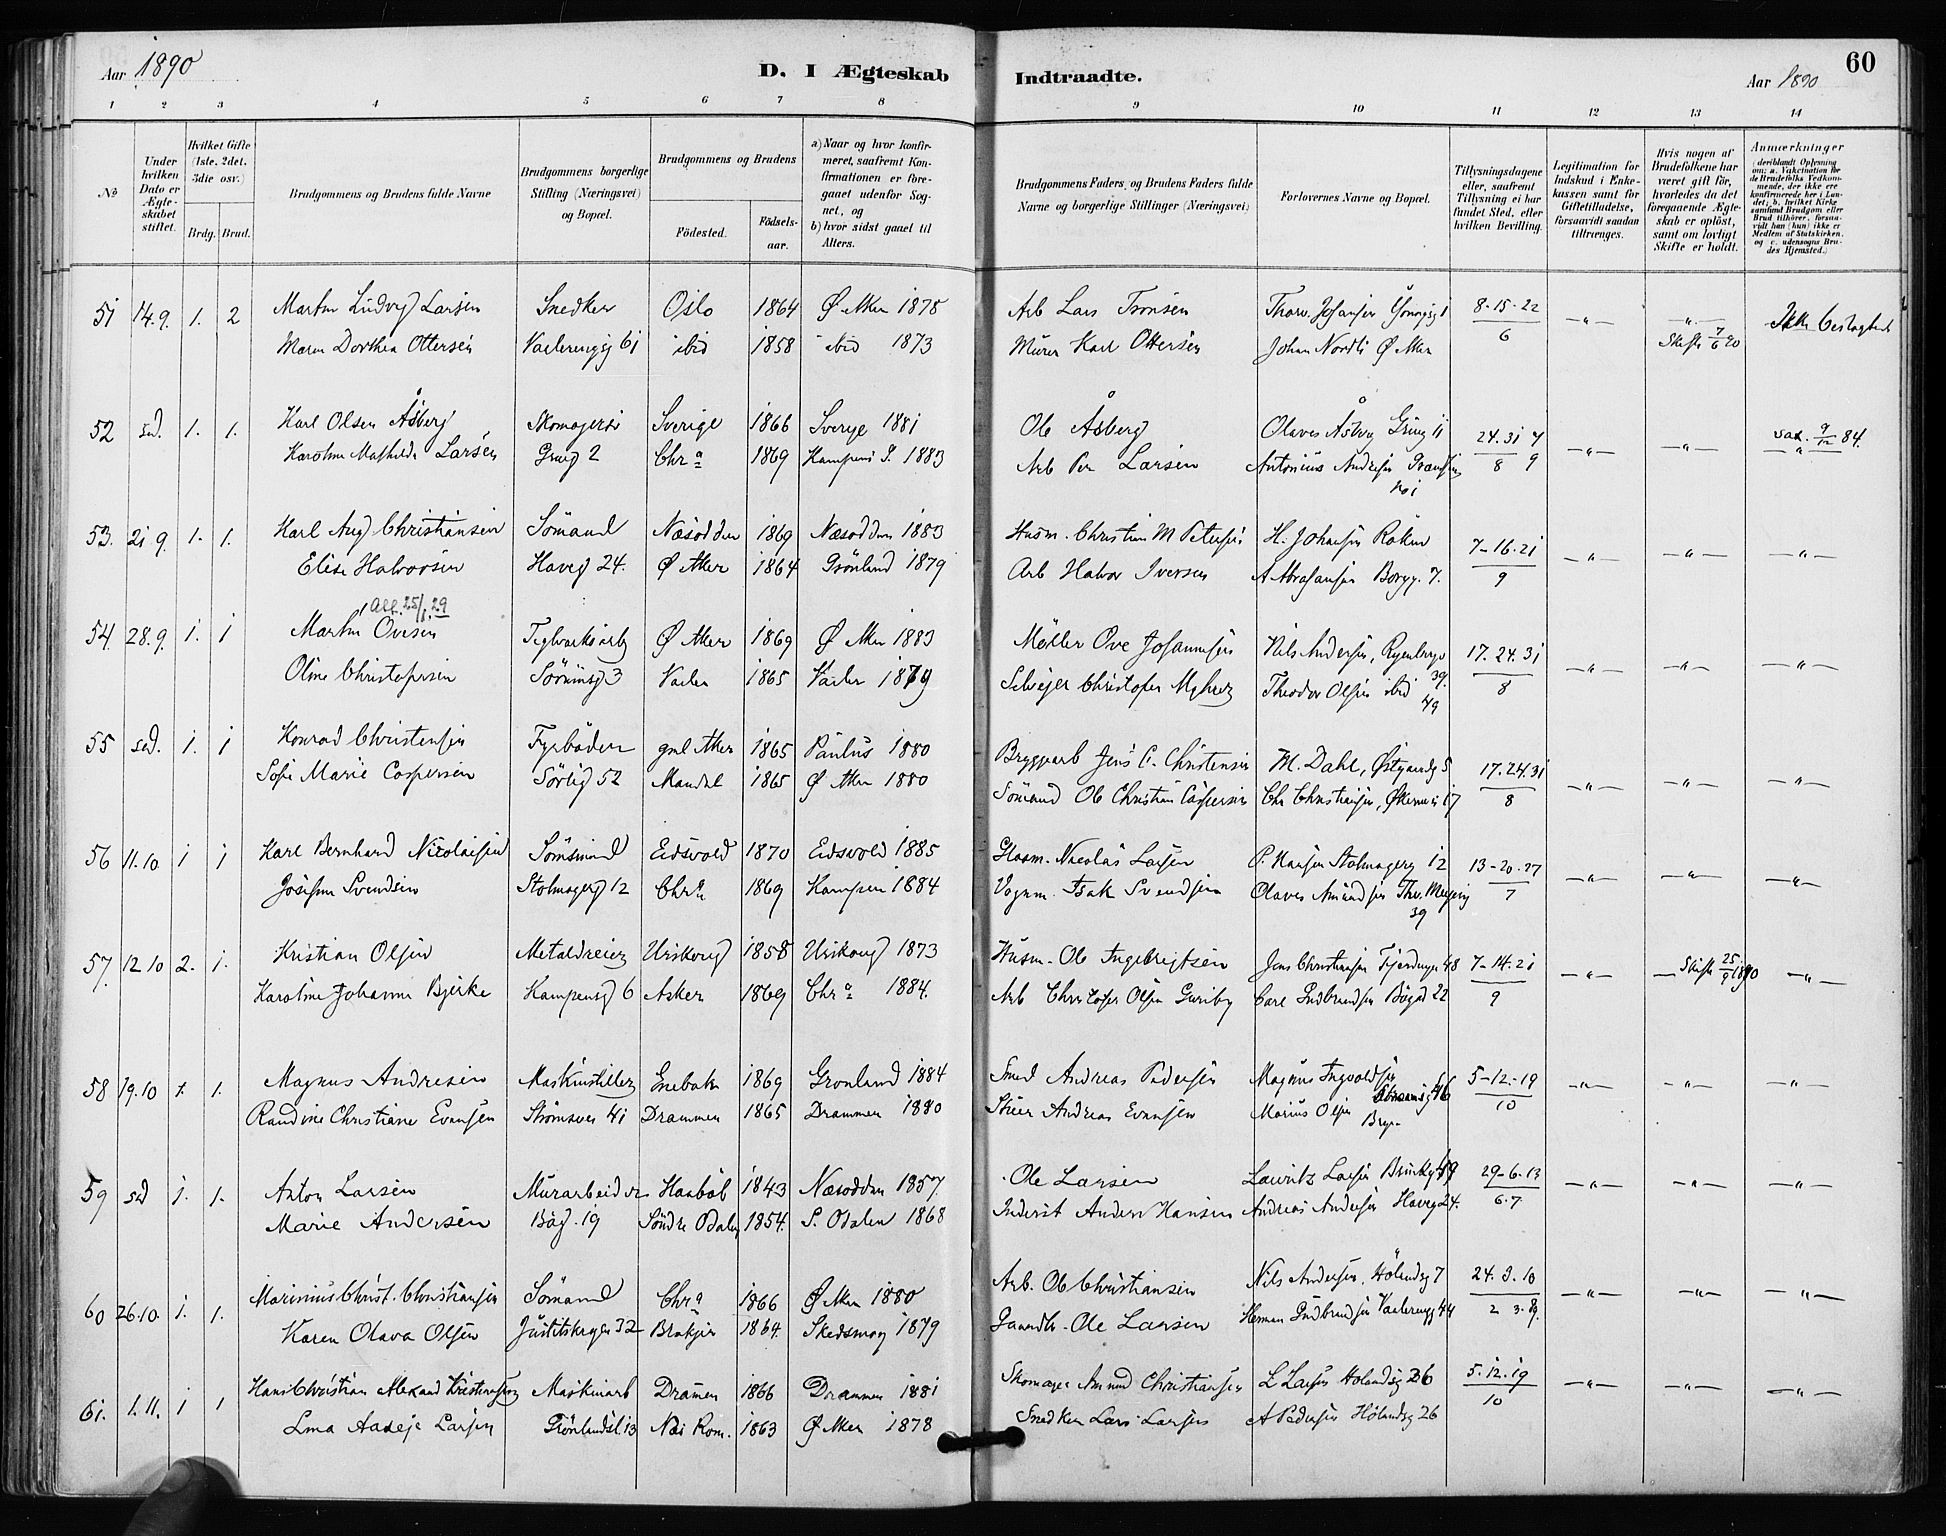 Aar 1890
D. I Ægteskab Indtraadte.
Aar 1890
60
1 2 3 4 5 6 7 8 9 10 11 12 13 14
No
Under hvilken Dato er Ægteskabet stiftet.
Hvilket Gifte (1ste, 2det, 3die osv.)
Brdg. Brud.
Brudgommens og Brudens fulde Navne
Brudgommens borgerlige Stilling (Næringsvei) og Bopæl.
Brudgommens og Brudens
Fødested.
Fødselsaar.
a) Naar og hvor konfirmeret, saafremt Konfirmationen er foregaaet udenfor Sognet, og
b) hvor sidst gaaet til Alters.
Brudgommens Faders, og Brudens Faders fulde Navne og borgerlige Stillinger (Næringsvei)
Forlovernes Navne og Bopæl.
Tillysningsdagene eller, saafremt Tillysning ei har fundet Sted, efter hvilken Bevilling.
Legitimation for Indskud i Enkekassen samt for Giftetilladelse, forsaavidt saadan tiltrænges.
Hvis nogen af Brudefolkene har været gift før, hvorledes da det foregaaende Ægteskab er opløst, samt om lovligt Skifte er holdt.
Anmærkninger (deriblandt Oplysning om: a. Vakcination for de Brudefolks Vedkommende, der ikke ere konfirmerede her i Landet; b. hvilket Kirkesamfund Brudgom eller Brud tilhører, forsaavidt han (hun) ikke er Medlem af Statskirken, og c. udensogns Brudes Hjemsted.)
51 14.9. 1. 2 Martin Ludvig Larsen Snedker Oslo 1864 Ø Aker 1878 Arb Lars Tronsen Thorv. Johansen 8-15-22 -"- -"-
Maren Dorthea Ottersen Vaalerengg 61 ibid 1858 ibid 1873 Murer Karl Ottersen Johan Nordli Ø Aker 6 Skifte 7/6 90
52 sad. 1. 1. Karl Olsen Åsberg Skomagersv Sverige 1866 Sverige 1881 Ole Åsberg Olaves Åsberg 24.31 7 -"- -"- vax. 9/12 84.
Karoline Mathilde Larsen 2 Chr.a 1869 Kampens S. 1883 Arb Per Larsen Antonius Andresen 8 9 -"-
53. 21 9. 1. 1. Karl Aug Christiansen Sömand Næsodden 1869 Næsodden 1883 Husm. Christian M Petersen H. Johansen Röken 7-16-21 -"- -"- -"-
Elise Halvorsen Haveg 24. Ø Aker 1864 Grönland 1879 Arb Halvor Iversen A Abrahamsen Borgg. 7. 9
25/1.29
54. 28.9. 1. 1 Martin Ovesen Teglværksarb Ø Aker 1869 Ø Aker 1883 Möller Ove Johannesen Nils Andersen, Ryenbergv 39. 17.24.31 -"- -"- -"-
Oline Christofersen Sörumsg 3 Vaaler 1865 Vaaler 1879 Selveier Christofer Myhrer Theodor Olsen ibid 49 8
55 sad. 1. 1 Konrad Christensen Fyrböder gml Aker 1865 Paulus 1880 Bryggearb Jens C. Christensen M. Dahl, Østgaardg 5 17.24.31 -"- -"- -"-
Sofie Marie Caspersen Sörlig 52 Mandal 1865 Ø Aker 1880 Sömand Ole Christian Caspersen Chr Christiansen, Økernv 17 8
56 11.10 1 1 Karl Bernhard Nicolaisen Sömand Eidsvold 1870 Eidsvold 1885 Husm. Nicolai Larsen P. Hansen Stolmagerg 12 13-20-27 -"- -"- -"-
Josefine Svendsen Stolmagerg 12 Chr.a 1869 Kampen 1884 Vognm. Isak Svendsen Olaves Amundsen Thv. Meyersg 39 7
57. 12 10 2. 1. Kristian Olsen Metaldreier Urskoug 1858 Urskoug 1873 Husm. Ole Ingebrigtsen Jens Christiansen Fjerdingg 48 7-14.21 -"- Skifte 25/9 1890 -"-
Karoline Johanne Bjerke Kampensg 6 Asker 1869 Chr.a 1884. Arb Christofer Olsen Carl Gulbrandsen Bög 22 9
58 19.10 1. 1. Magnus Andresen Maskinstiller Enebak 1869 Gronland 1884 Smed Andreas Pedersen Magnus Ingvoldsen 46 5-12-19 -"- -"- -"-
Randine Christiane Evensen Strömsvei 41 Drammen 1865 Drammen 1880 Andreas Evensen Marius Olsen Bryn 10
59 sad 1. 1. Anton Larsen Murarbeider Haaböl 1843 Næsodden 1857. Ole Larsen Lauritz Larsen 29-6-13 -"- -"- -"-
Marie Andersen Bög. 19 Söndre Odalen 1854. S. Odalen 1868 Inderst Anders Hansen Andreas Andersen Haveg 24. 6.7
60 26.10. 1. 1. Marinius Christ. Christiansen Sömand Chr.a 1866 Ø Aker 1880 Arb. Ole Christiansen Nils Andersen, Hölandsg 7 24. 3. 10 -"- -"- -"-
Karen Olava Olsen 32 1864. Skedsmo 1879 Gaardbr. Ole Larsen Herman Gulbrandsen Vaalerengg 44 2 3. 8.
61. 1.11. 1 1 Hans Christian Alexand Kristensen Maskinarb Dramen 1866 Drammen 1881 Skomager Amund Christiansen L Larsen Hölandsg 26 5.12.19 -"- -"- -"-
Lina Aadeje Larsen Grönlandsl. 13 Næs Rom. 1863 Ø Aker 1878 Snedker Lars Larsen A Pedersen Hölandsg 26 10